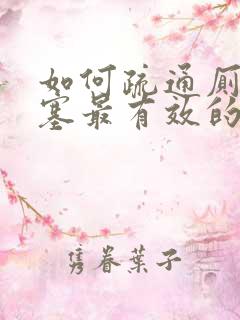 如何疏通厕
塞最有效的
隽眷叶子